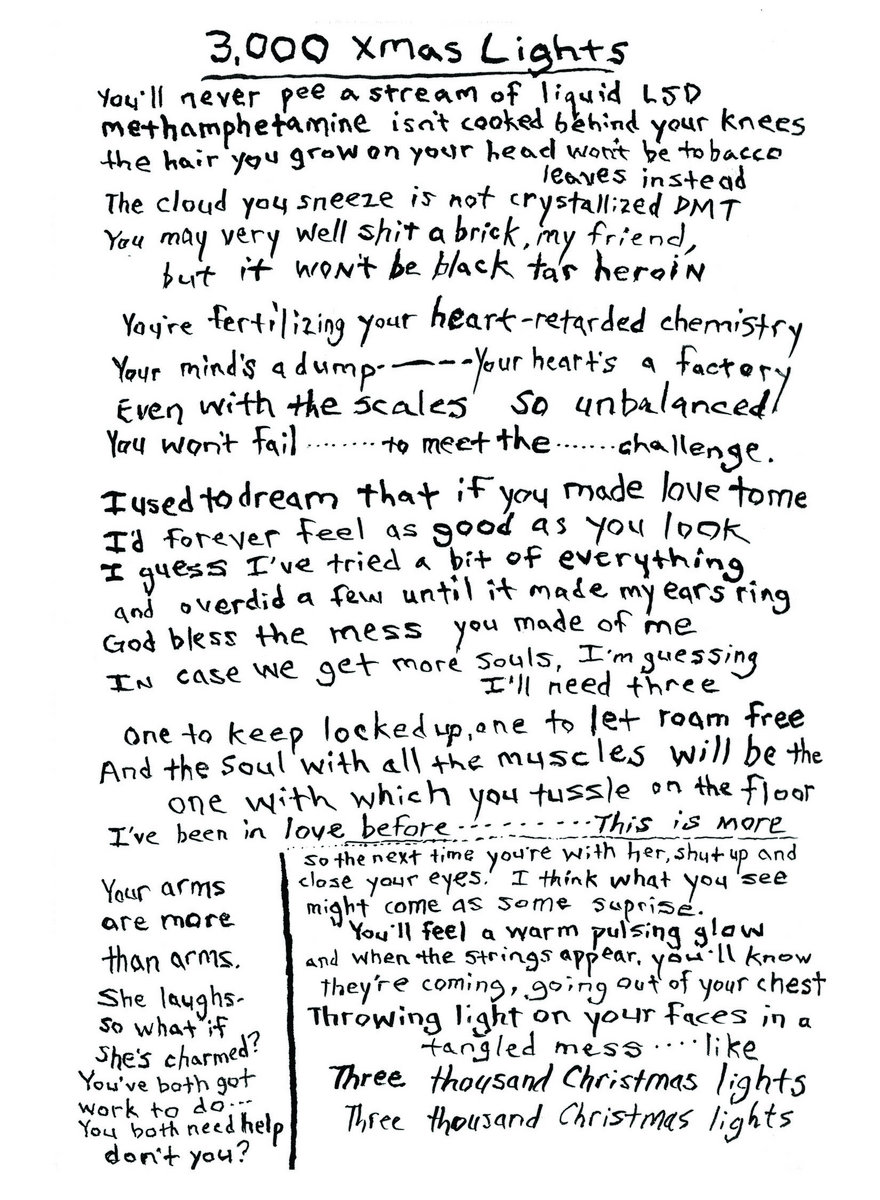 3,000 Xmas Lights
You'll never pee a stream of liquid LSD
methamphetamine isn't cooked behind your knees
the hair you grow on your head won't be tobacco
leaves instead
The cloud you sneeze is not crystallized DMT
You may very well shit a brick, my friend,
but it won't be black tar heroin
You're fertilizing your heart-retarded chemistry
Your mind's a dump-——---Your heart's a factory
Even with the scales so unbalanced
You won't fail ........ to meet the ....... challenge.
I used to dream that if you made love to me
I'd forever feel as good as you look
I guess I've tried a bit of everything
and overdid a few until it made my ears ring
God bless the mess you made of me
In case we get more souls, I'm guessing
I'll need three
one to keep locked up, one to let roam free
And the soul with all the muscles will be the
one with which you tussle on the floor
I've been in love before ---------- This is more
Your arms
are more
than arms.
She laughs-
so what if
she's charmed?
You've both got
work to do...
You both need help
don't you?
so the next time you're with her, shut up and
close your eyes. I think what you see
might come as some suprise.
You'll feel a warm pulsing glow
and when the strings appear, you'll know
they're coming, going out of your chest
Throwing light on your faces in a
tangled mess .... like
Three thousand Christmas lights
Three thousand Christmas lights